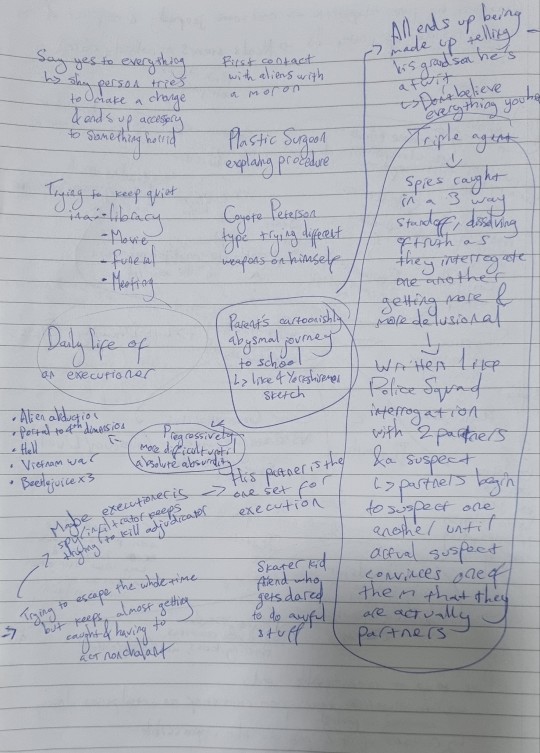 Say yes to everything
↳ shy person tries
to make a change
& ends up accessory
to something horrid
First contact
with aliens with
a moron
Plastic Surgeon
explaining procedure
Trying to keep quiet
in a: - library
- Movie
- Funeral
- Meeting
Coyote Peterson
type trying different
weapons on himself
Daily life of
an executioner
Parent's cartoonishly
abysmal journey
to school
↳ like 4 Yorkshiremen
sketch
All ends up being
made up telling
his grandson he's
a twit
↳ Don't believe
everything you
• Alien abduction
• Portal to 4th dimension
• Hell
• Vietnam war
• Beetlejuice x3
Progressively
more difficult until
absolute absurdity
Maybe executioner is
spy/infiltrator keeps
trying to kill adjudicator
→ His partner is the
one set for
execution
→ Trying to escape the whole time
but keeps almost getting
caught & having to
act nonchalant
Skater kid
friend who
gets dared
to do awful
stuff
Triple agent
↓
Spies caught
in a 3 way
standoff, dissolving
of truth as
they interrogate
one another
getting more &
more delusional
↓
Written like
Police Squad
interrogation
with 2 partners
& a suspect
↳ partners begin
to suspect one
another until
actual suspect
convinces one of
them that they
are actually
partners